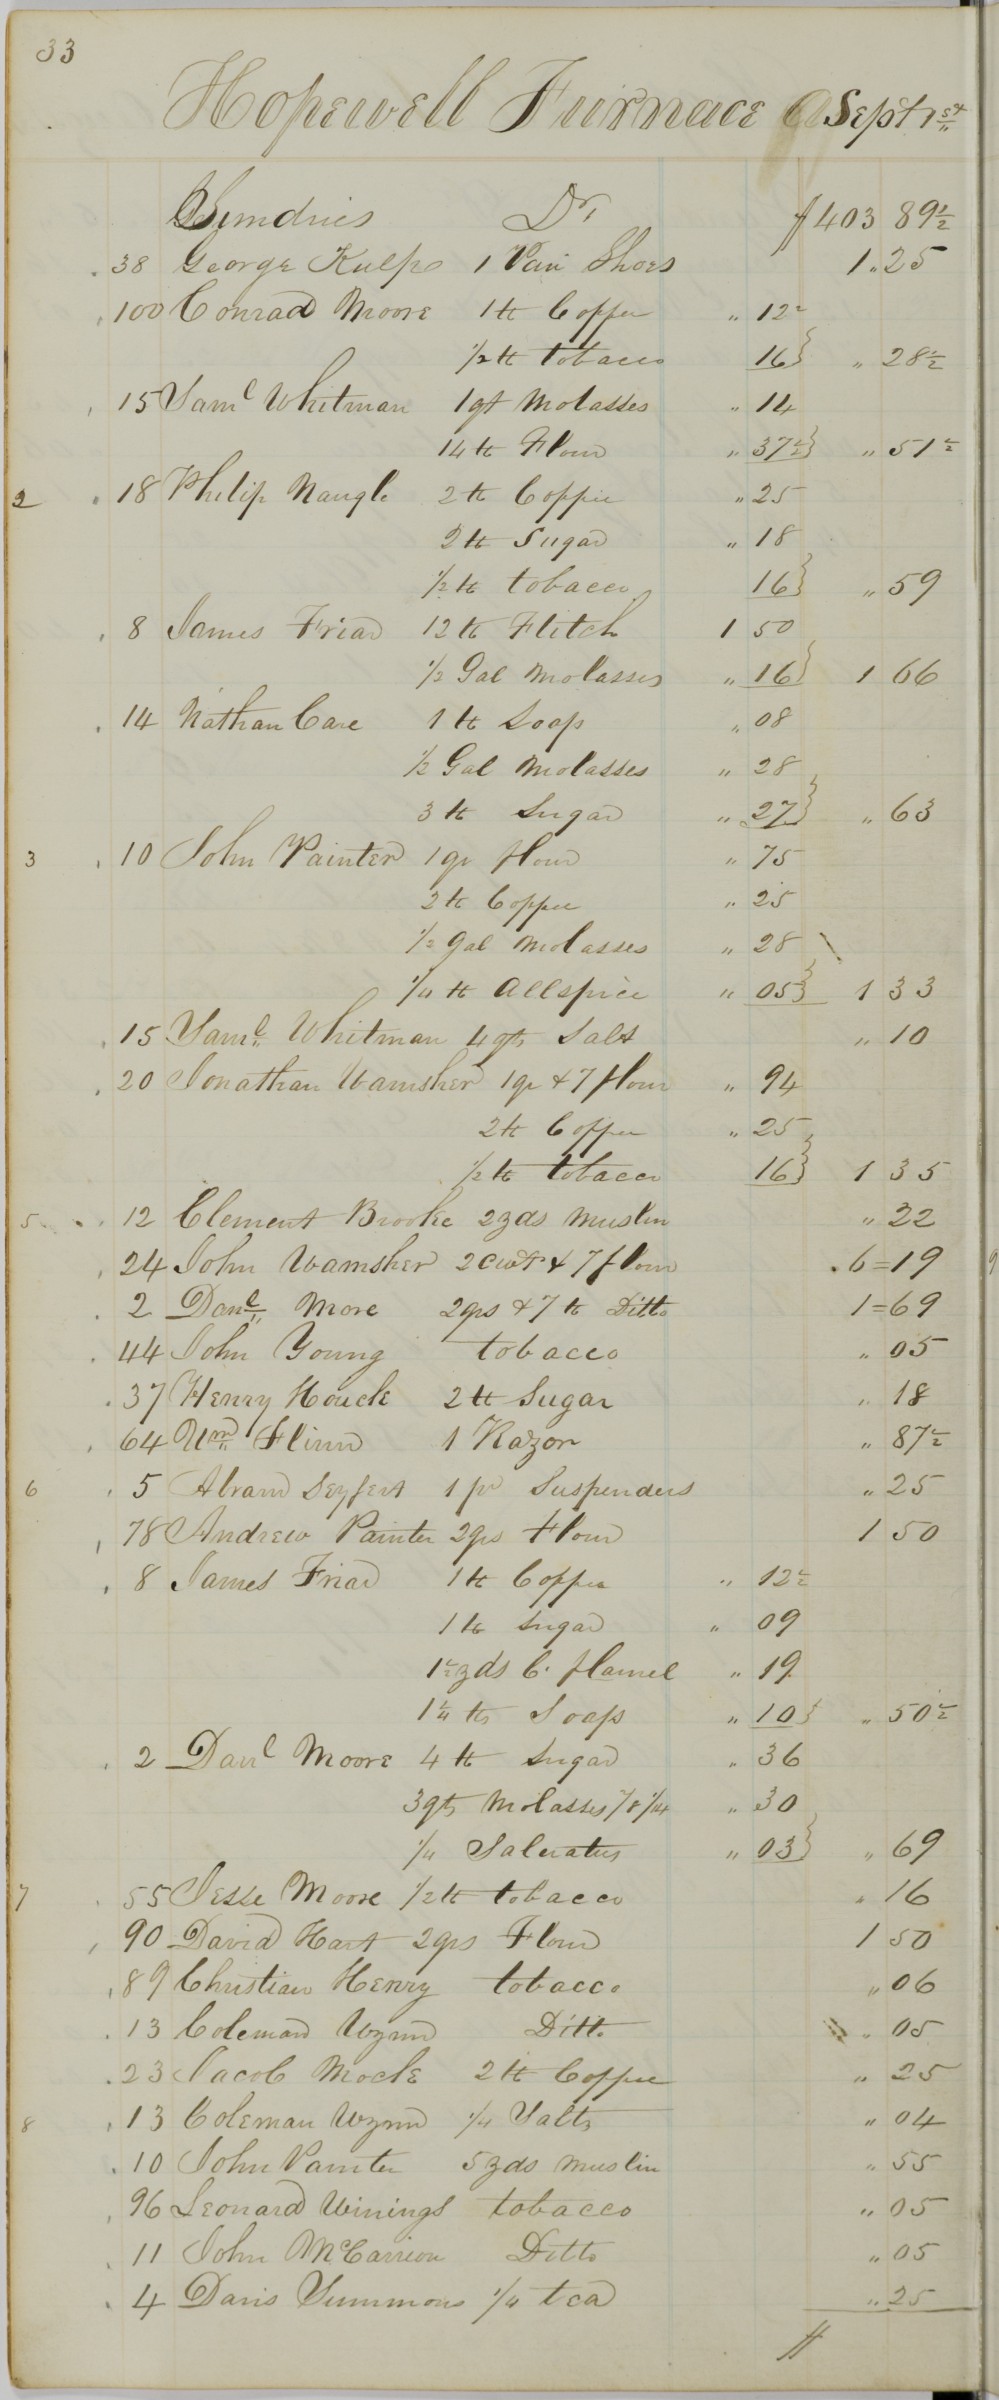 33
Hopewell Furnace Sept 1st
Sundries Dr, 403 89½
38 George Kulp 1 Pair Shoes 1.25
100 Conrad Moore 1 ℔ Coffee " 12½
½ ℔ tobacco 16} " 28½
15 Saml Whitman 1 qt Molasses " 14
14 ℔ Flour " 37½} " 51½
2 18 Philip Naugle 2 ℔ Coffee " 25
2 ℔ Sugar " 18
½ ℔ tobacco 16} " 59
8 James Friar 12 ℔ Flitch 1 50
½ Gal Molasses " 16} 1 66
14 Nathan Care 1 ℔ Soap " 08
½ Gal Molasses " 28
3 ℔ Sugar " 27} " 63
3 10 John Painter 1 qr flour " 75
2 ℔ Coffee " 25
½ gal Molasses " 28
¼ ℔ Allspice " 05} 1 33
15 Saml Whitman 4 qts Salt " 10
20 Jonathan Wamsher 1 qr & 7 flour " 94
2 ℔ Coffee " 25
½ ℔ tobacco 16} 1 35
5 12 Clement Brooke 2 yds Muslin " 22
24 John Wamsher 2 cwt & 7 flour 6=19
2 Danl More 2 qrs & 7 ℔ Ditto 1=69
44 John Young tobacco " 05
37 Henry Houck 2 ℔ Sugar " 18
64 Wm Flinn 1 Razor " 87½
6 5 Abram Seyfert 1 pr Suspenders " 25
78 Andrew Painter 2 qrs Flour 1 50
8 James Friar 1 ℔ Coffee " 12½
1 ℔ Sugar " 09
1½ yds C. flannel " 19
1¼ ℔s Soap " 10} " 50½
2 Danl Moore 4 ℔ Sugar " 36
3 qts Molasses " 30
¼ Saleratus " 03} " 69
7 55 Jesse Moore ½ ℔ tobacco " 16
90 David Hart 2 qrs Flour 1 50
89 Christian Henry tobacco " 06
13 Coleman Wynn Ditto " 05
23 Jacob Mock 2 ℔ Coffee " 25
8 13 Coleman Wynn ¼ Salts " 04
10 John Painter 5 yds Muslin " 55
96 Leonard Winings tobacco " 05
11 John McCarrion Ditto " 05
4 Davis Summons ¼ tea " 25